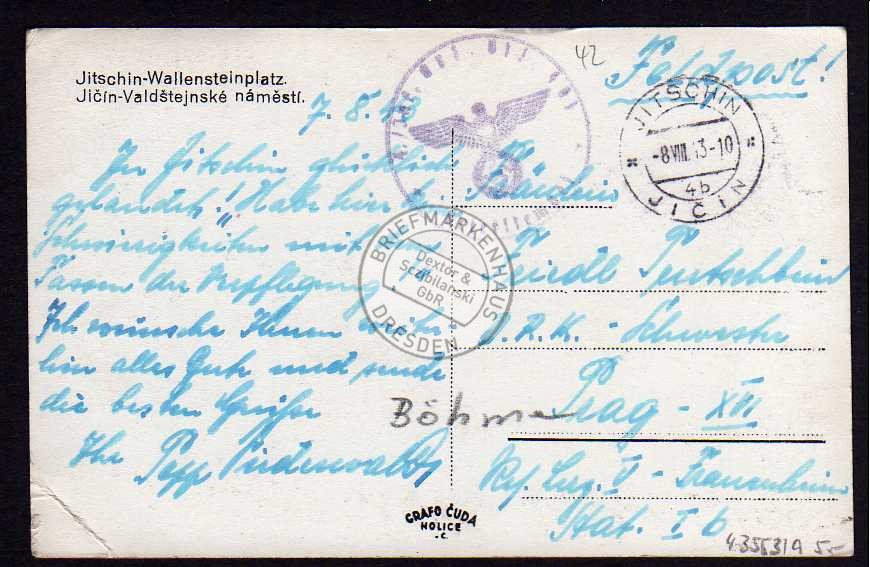 Jitschin-Wallensteinplatz.
Jičín-Valdštejnské náměstí.
42
Feldpost!
JITSCHIN
-8.VIII.43-10
4b
JIČÍN
7. 8. 43
In Jitschin glücklich
gelandet! Habe hier
Schwierigkeiten mit
Fassen der Verpflegung
Ich wünsche Ihnen weiter-
hin alles Gute und sende
die besten Grüße
Ihr Sepp
Fräulein
Friedl
D.R.K. - Schwester
Prag - XII
Res. Laz. V - Frauenheim
Stat. I b
BRIEFMARKENHAUS
Dextor &
Sczibilanski
GbR
DRESDEN
GRAFO ČUDA
HOLICE
.Č.
435531A 5.-